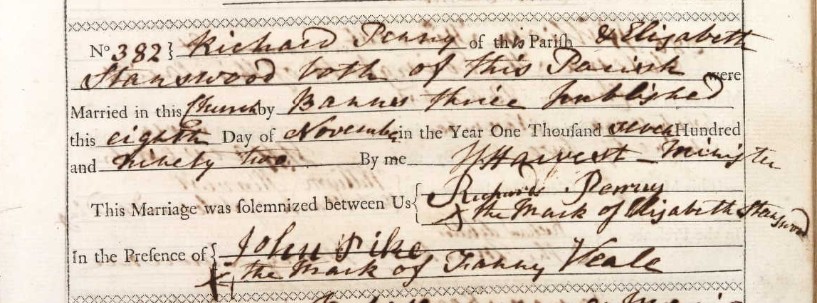 No 382} Richard Penny of this Parish & Elisabeth
Stanswood both of this Parish were
Married in this Church by Banns thrice published
this eighth Day of November in the Year One Thousand seven Hundred
and ninety two By me Harvest Minister
This Marriage was solemnized between Us { Richard Penny
X the Mark of Elisabeth Stanswood
In the Presence of { John Pike
X the Mark of Fanny Veale